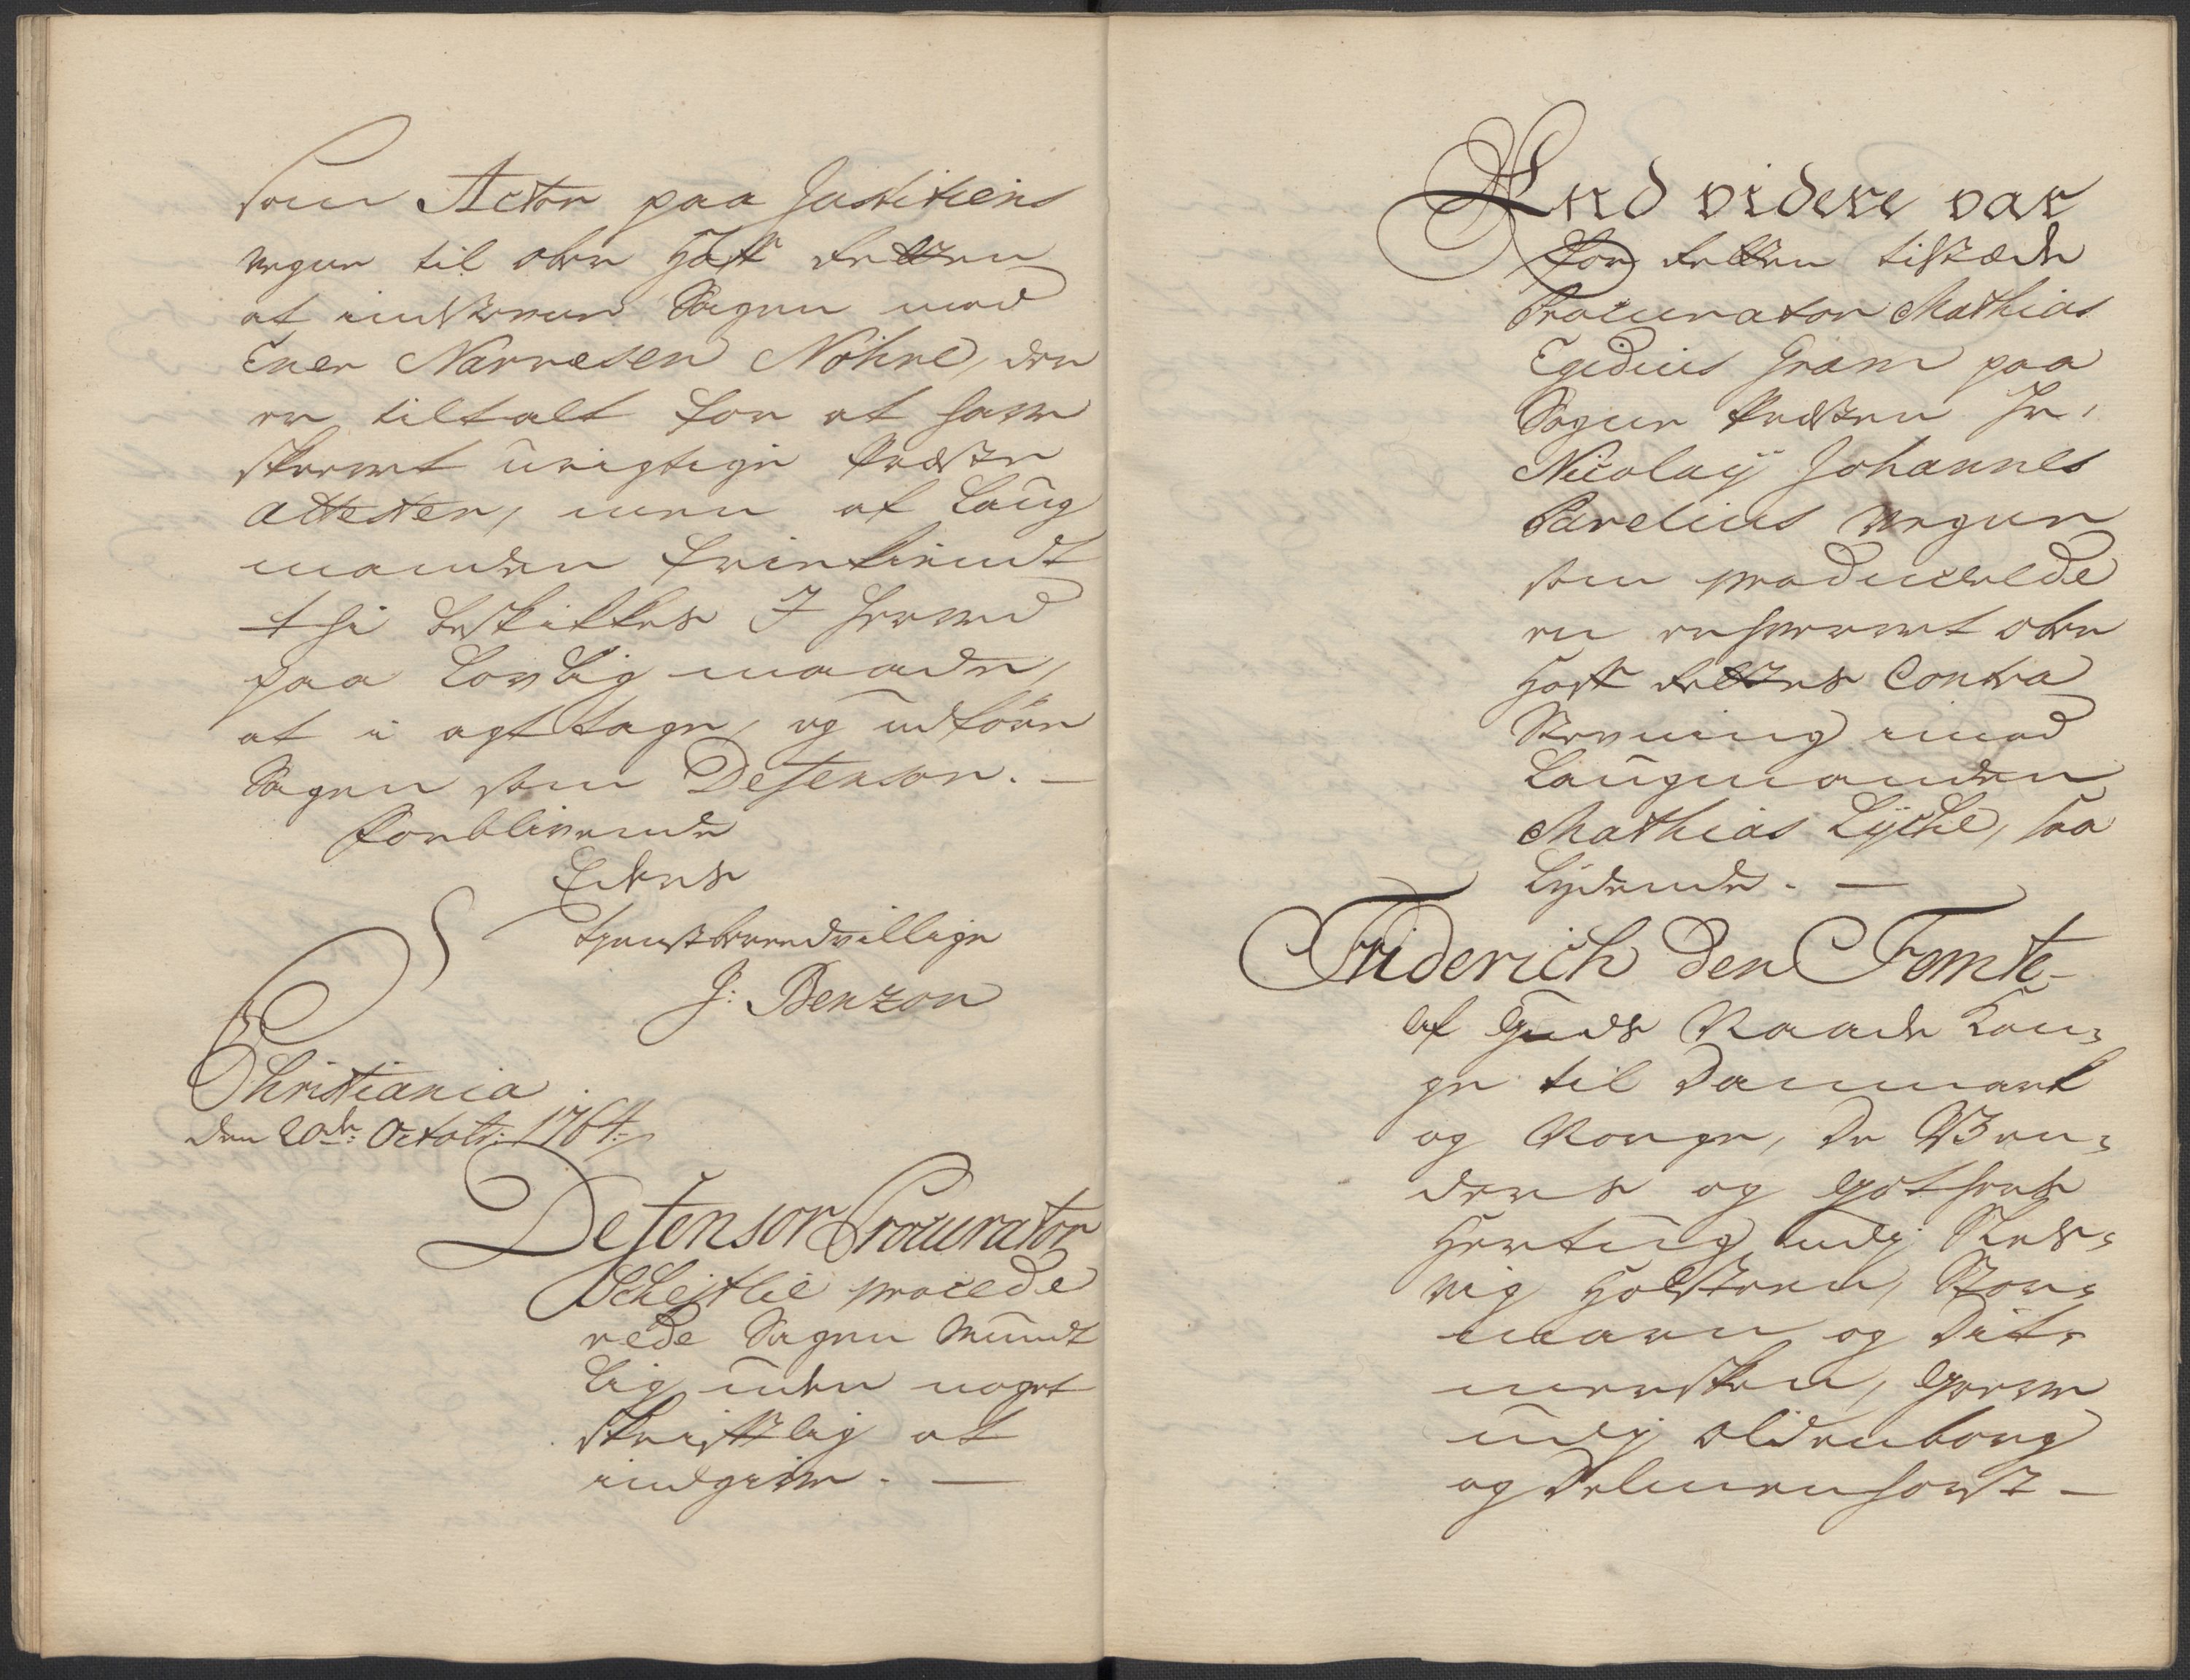 som Actor paa Justitiens
vegne til ober Hoff Retten
at indstevne Sagen mod
Ener Narvesen Nöhre, der
er tiltalt for at have
skrevet urigtige Præste
Attester, men af Laug
manden friekiendt
thi beskikkes I herved
paa Lovlig maade,
at i agttage, og udföre
Sagen som Defensor. —
forblivende
Eders
tjenstberedvillige
J: Benzon
Christiania
den 20de Octobr: 1764.
Defensor Procurator
Schejtlie procede
rede Sagen Mundt
lig uden noget
skriftlig at
indgive. —
End videre var
for Retten tilstæde
Procurator Mathias
Egidius Gram paa
Sogne Præsten Hr.
Nicolaij Johannes
Parelius vegne
som producerede
en erhvervet ober
Hoff Rettes Contra
Stevning imod
Laugmanden
Mathias Lyche, saa
lydende. —
Friderich den Femte
af Guds Naade Kon-
ge til Danmark
og Norge, de Ven-
ders og Gothers
Hertug udj Sles-
vig Holsteen, Stor-
marn og Dit-
mersken, Greve
udj Oldenborg
og Delmenhorst —